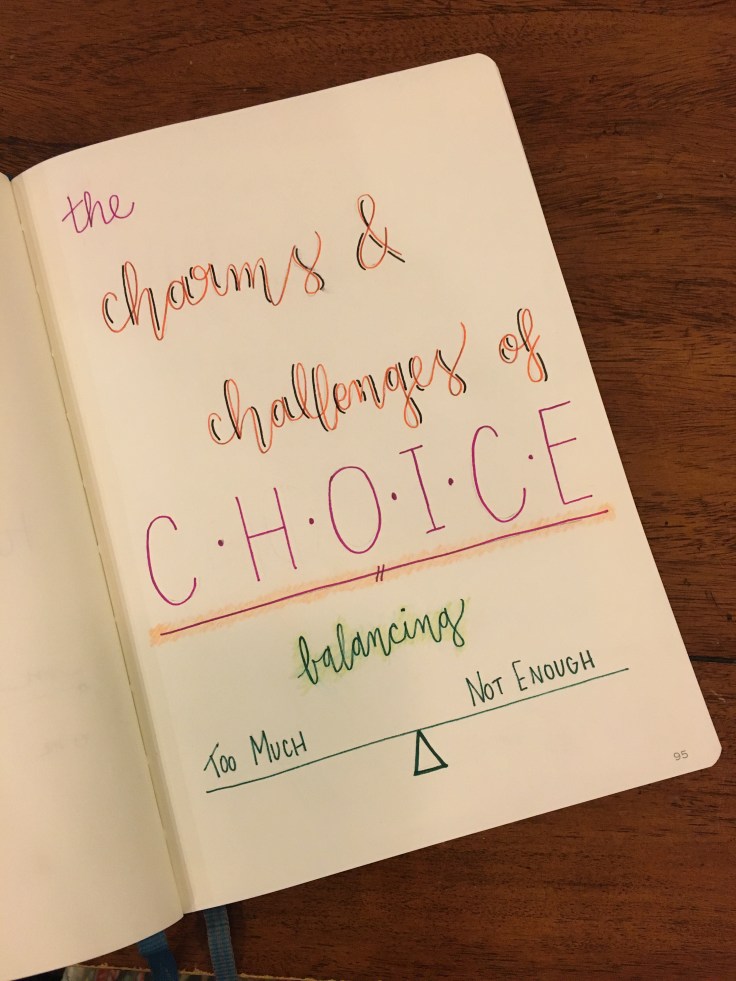 the
charms &
challenges of
C·H·O·I·C·E
balancing
Not Enough
Too Much
95